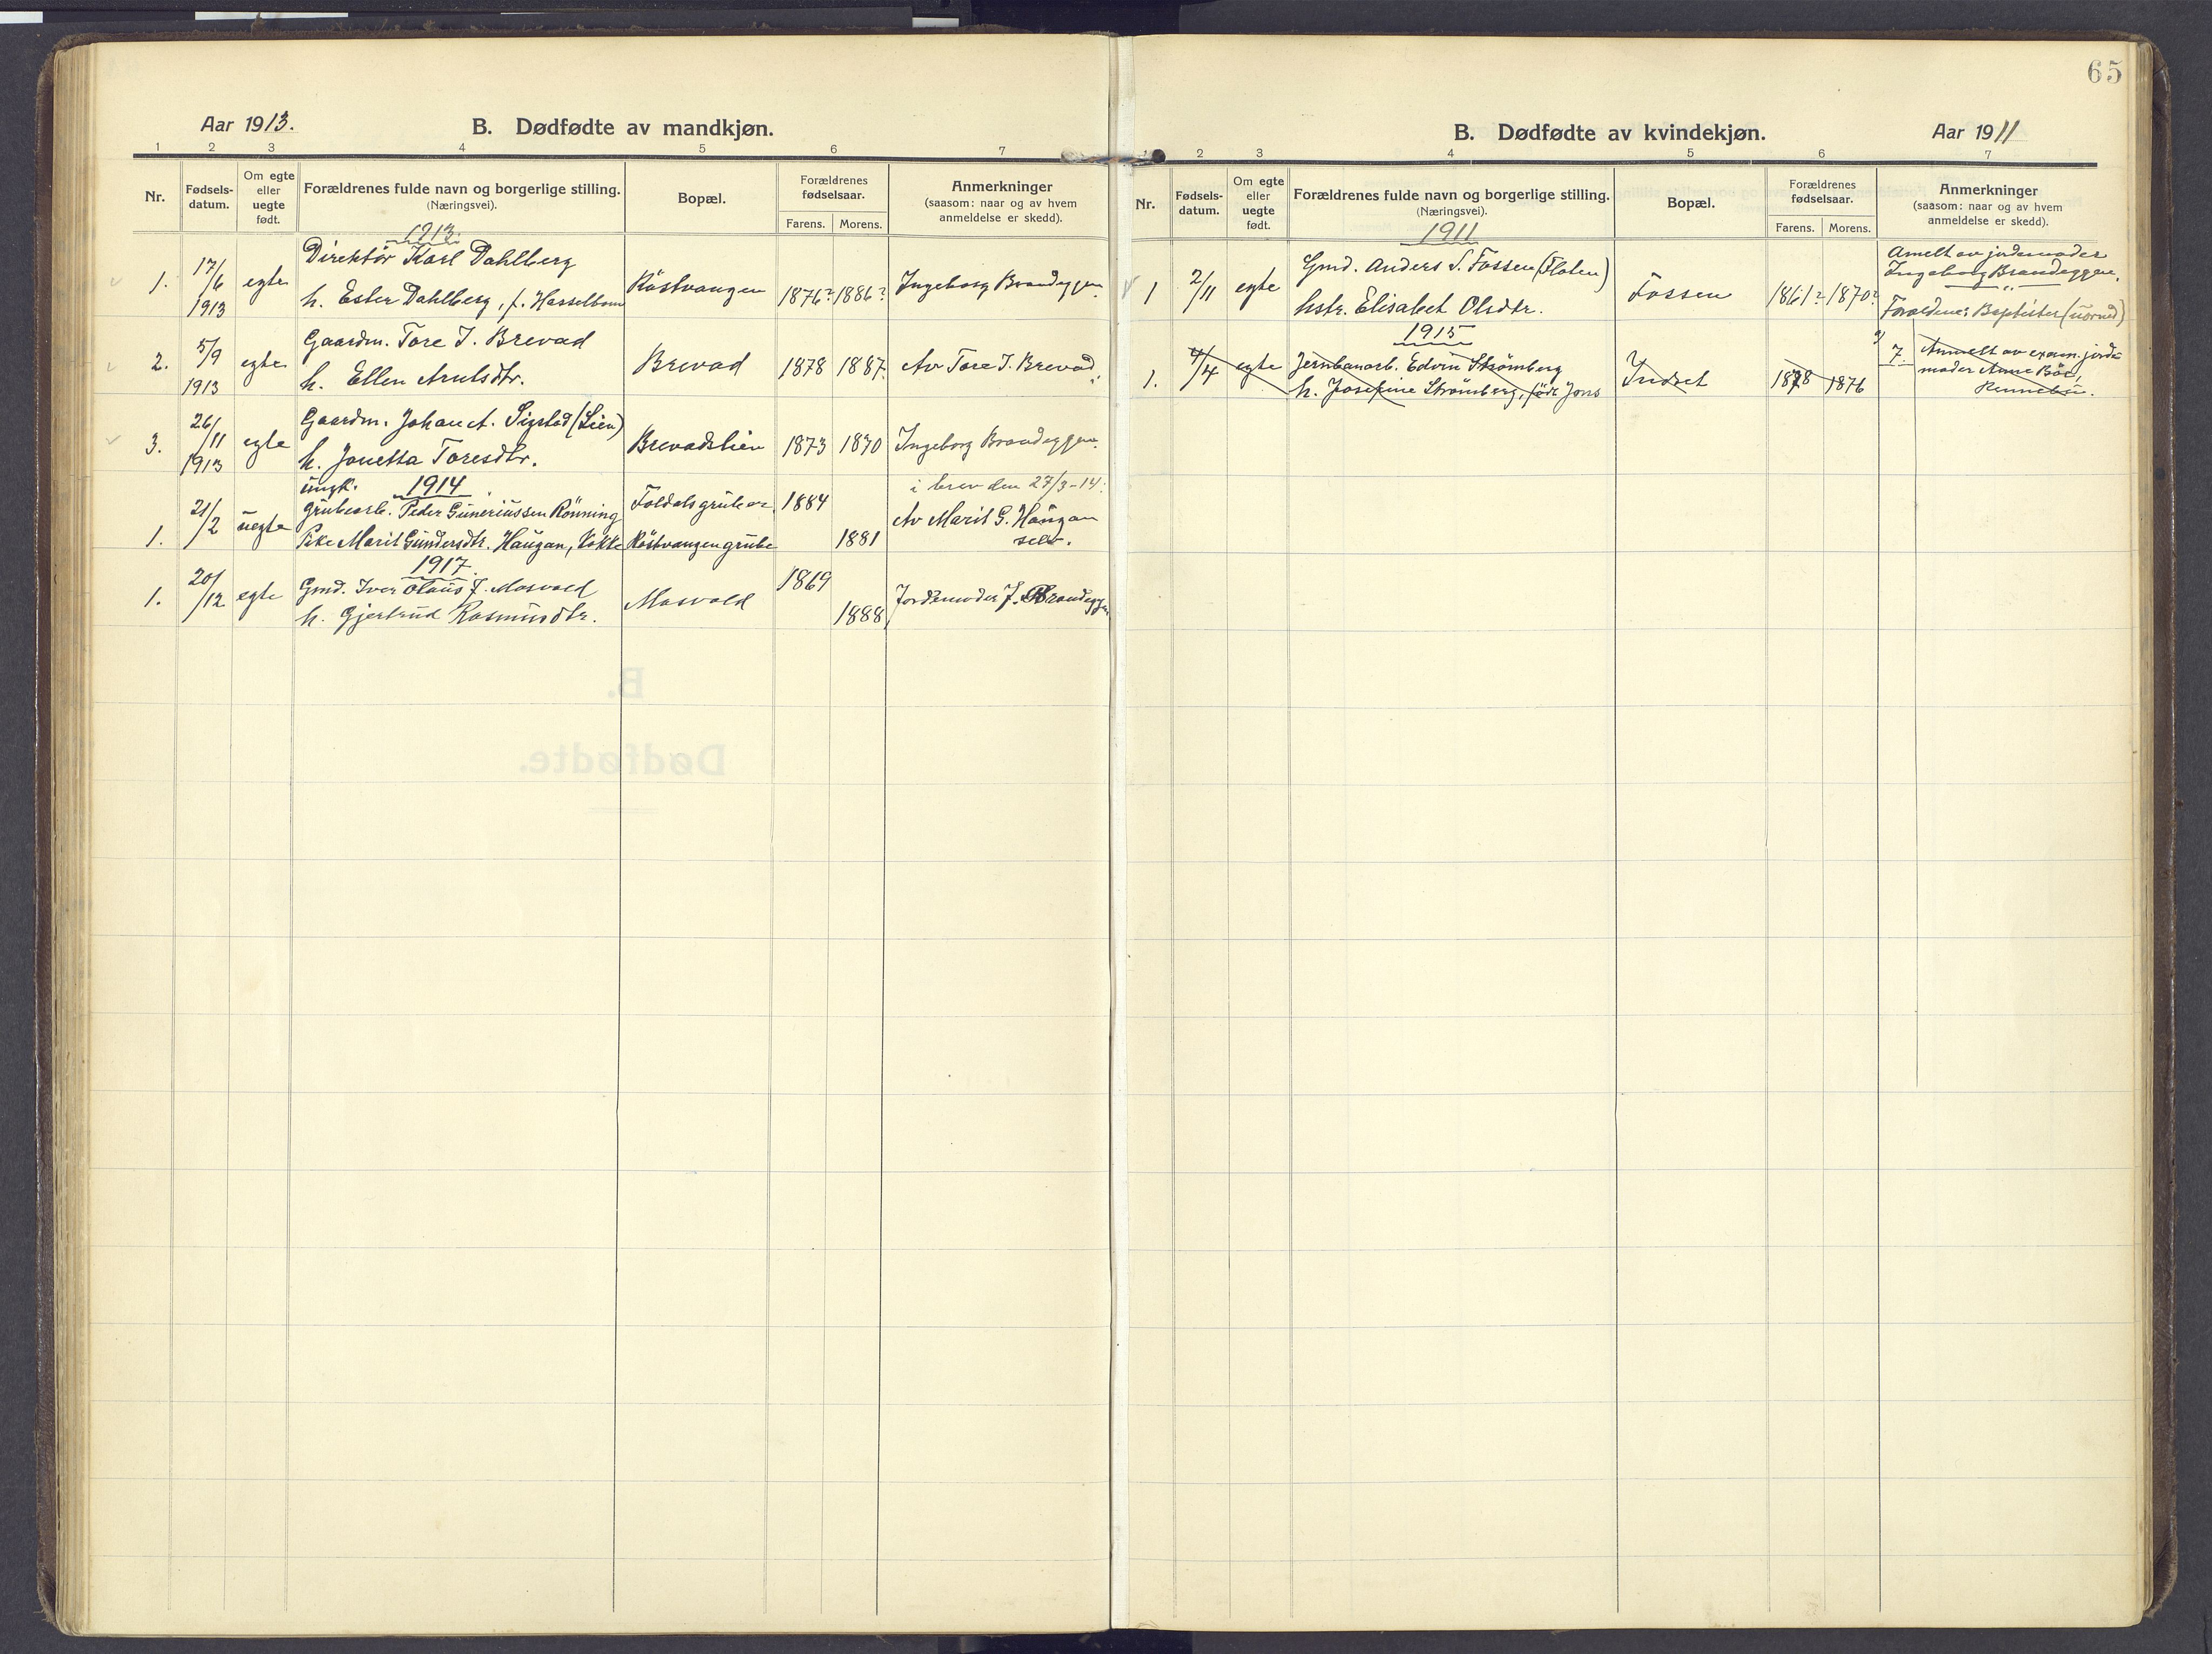 65
Aar 1913.
B. Dødfødte av mandkjøn.
1 2 3 4 5 6 7
Nr.
Fødsels-
datum.
Om egte
eller
uegte
født.
Forældrenes fulde navn og borgerlige stilling.
(Næringsvei).
Bopæl.
Forældrenes
fødselsaar.
Farens. Morens.
Anmerkninger
(saasom: naar og av hvem
anmeldelse er skedd).
1913.
1. 17/6 1913 egte Direktør Karl Dahlberg Röstvangen 1876? 1886? Ingeborg Brandeggen
h. Ester Dahlberg, f. Hasselbom
2. 5/9 1913 egte Gaardm. Tore J. Brevad Brevad 1878 1887. Av Tore J. Brevad.
h. Ellen Arntsdtr.
3. 26/11 1913 egte Gaardm. Johan A. Sigstad (Lien) Brevadslien 1873 1870 Ingeborg Brandeggen.
h. Jonetta Toresdtr.
1914
i brev den 27/3-14.
ungk.
1. 21/2 uegte Grubearb. Peder Guneriussen Rönning Foldalsgruber 1884 Av Marit G. Haugan
Pike Marit Gundersdtr. Haugan, Kokke Röstvangen grube 1881 selv.
1917.
1. 20/12 egte Gmd. Iver Olaus J. Mosvold Mosvold 1869 Jordemoder J. Brandeggen
h. Gjertrud Rasmusdtr. 1888
B. Dødfødte av kvindekjøn.
Aar 1911
1 2 3 4 5 6 7
Nr.
Fødsels-
datum.
Om egte
eller
uegte
født.
Forældrenes fulde navn og borgerlige stilling.
(Næringsvei).
Bopæl.
Forældrenes
fødselsaar.
Farens. Morens.
Anmerkninger
(saasom: naar og av hvem
anmeldelse er skedd).
1911
1 2/11 egte Gmd. Anders S. Fossen (Floten) Fossen 1861? 1870? Amelt av jordemoder
hstr. Elisabet Olsdtr. Ingeborg Brandeggen.
Forældrene: Baptister
1915
1. /4 egte Jernbanearb. Edvin Strömberg Indset 1878 1876 7. Anmelt av exam. jorde-
h. Josefine Strömberg, född Jons moder Anne Böe,
Rennebu.